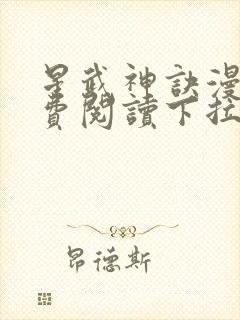 星武神訣漫
費閱讀下拉
昂德斯